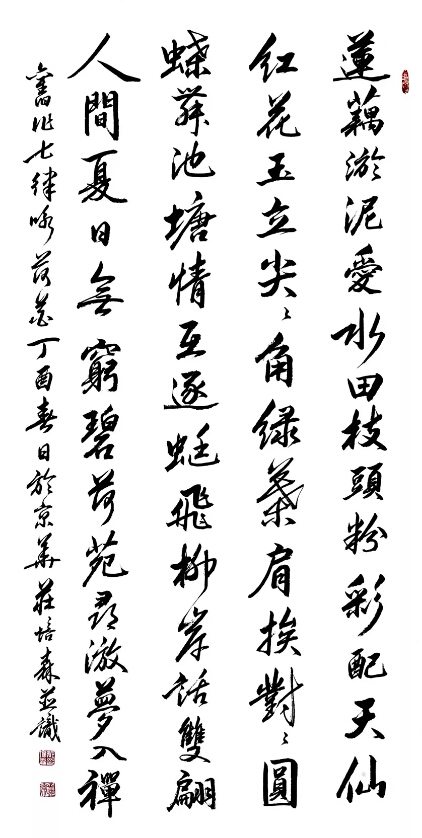 蓮藕淤泥愛水田枝頭粉彩配天仙
红花玉立尖々角绿葉肩挨對々圓
蝶舞池塘情互逐蜓飛柳岸話雙翩
人間夏日無窮碧荷苑尋激夢入禪
舊作七律咏荷花丁酉春日於京華莊培森並識